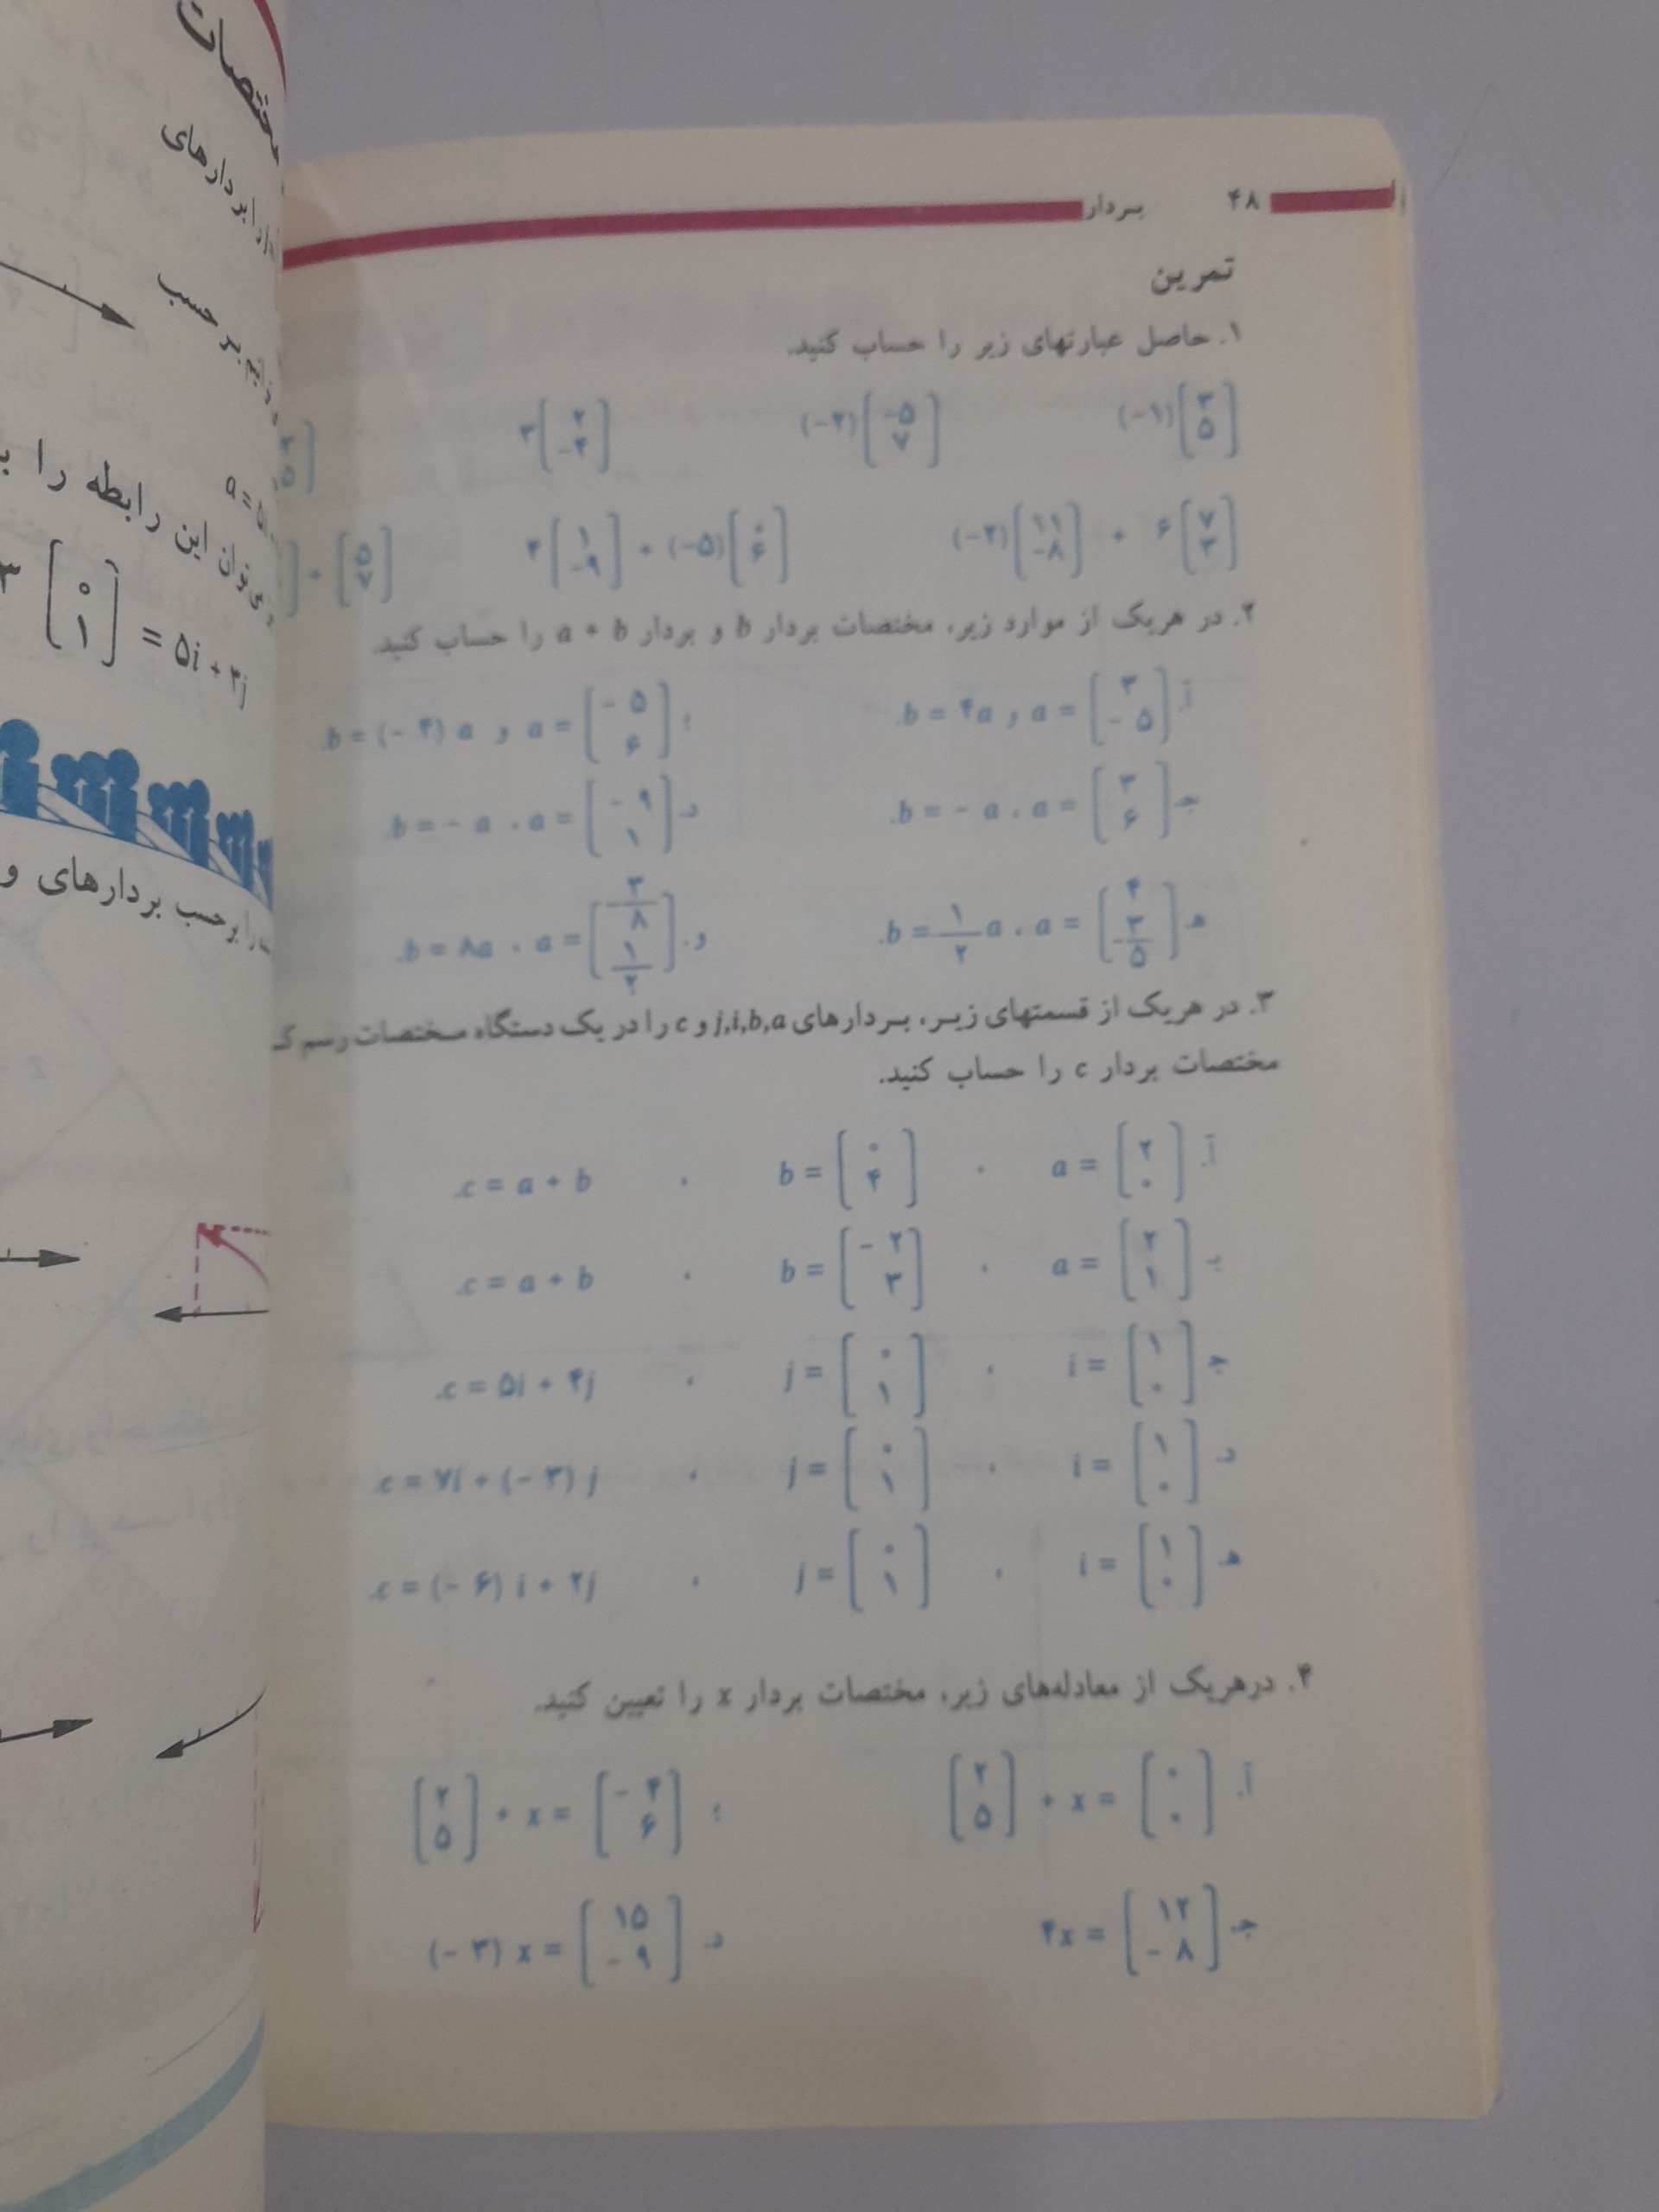 مختصات
بردارهای
بر حسب
a = ۵i
توان این رابطه را
[۰ ۱] = ۵i + ۳j
بر حسب بردارهای و
۴۸ بردار
تمرین
۱. حاصل عبارتهای زیر را حساب کنید.
(-۱)[۳ ۵] [-۵ ۷] ۳[۲ -۴]
[۱۱ -۸] + ۶[۷ ۳] ۴[۱ -۹] + (-۵)[۰ ۶] + [۵ ۷]
۲. در هریک از موارد زیر، مختصات بردار b و بردار a + b را حساب کنید.
آ. a = [۳ -۵] و b = ۴a.
a = [-۵ ۶] و b = (-۴) a.
جـ. a = [۳ ۶] ، b = - a.
د. a = [-۹ ۱] ، b = - a.
هـ. a = [۴ -۳/۵] ، b = ۱/۲ a.
و. a = [-۳/۸ ۱/۲] ، b = ۸a.
۳. در هریک از قسمتهای زیر، بردارهای j,i,b,a و c را در یک دستگاه مختصات رسم
مختصات بردار c را حساب کنید.
آ. a = [۲ ۰] ، b = [۰ ۴] ، c = a + b.
a = [۲ ۱] ، b = [-۲ ۳] ، c = a + b.
جـ. i = [۱ ۰] ، j = [۰ ۱] ، c = ۵i + ۴j.
د. i = [۱ ۰] ، j = [۰ ۱] ، c = ۷i + (-۳) j.
هـ. i = [۱ ۰] ، j = [۰ ۱] ، c = (-۶) i + ۲j.
۴. درهریک از معادله‌های زیر، مختصات بردار x را تعیین کنید.
آ. [۲ ۵] + x = [۰ ۰]
[۲ ۵] + x = [-۴ ۶]
جـ. ۴x = [۱۲ -۸]
د. (-۳) x = [۱۵ -۹]